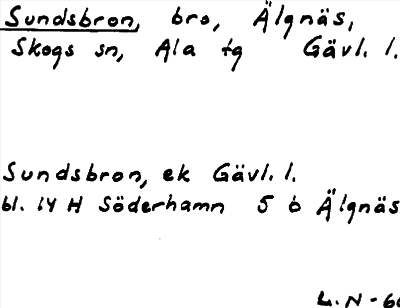 Sundsbron, bro, Älgnäs,
Skogs sn, Ala tg Gävl. l.
Sundsbron, ek Gävl. l.
bl. 14 H Söderhamn 5 b Älgnäs
L.N-60